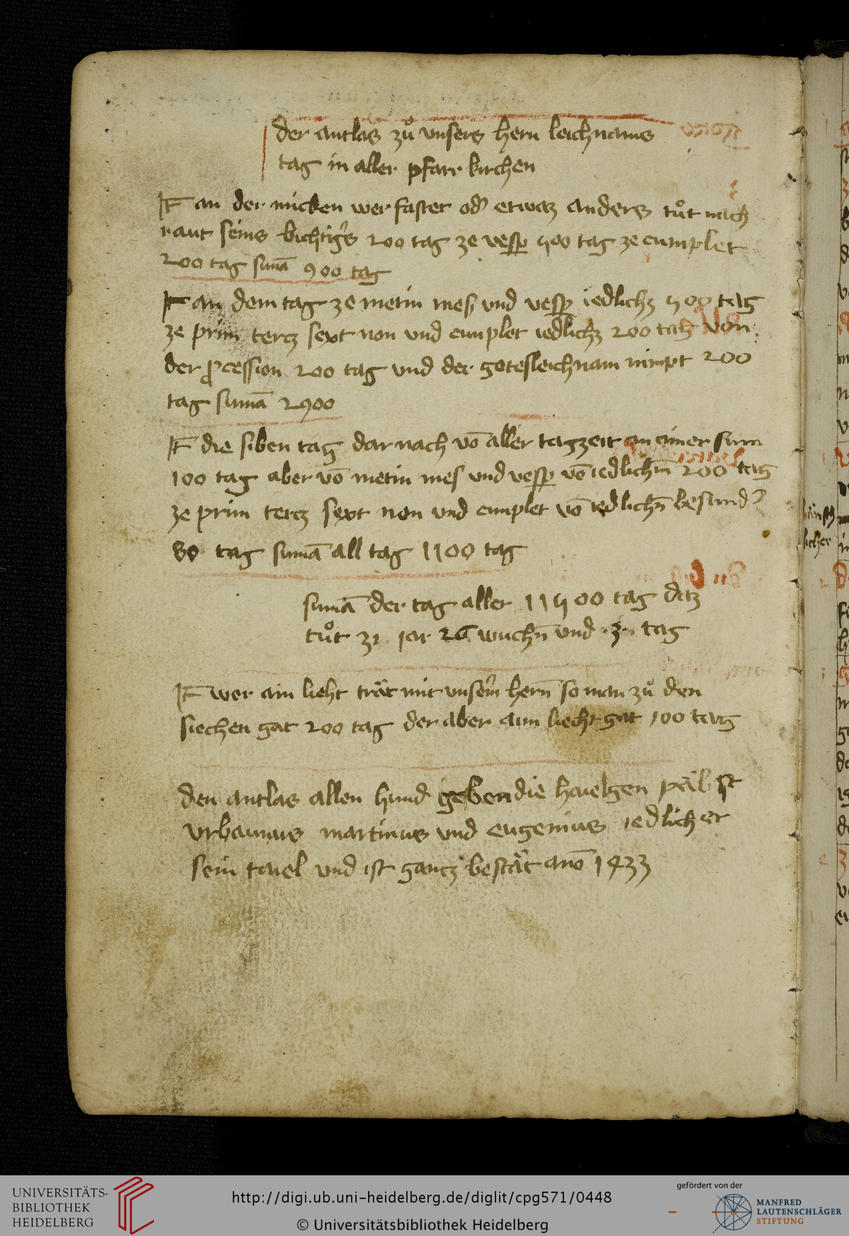 der antlas zů unsers hern leichnams
tag in aller pfarr kirchen
It an der micken wer fastet od etwaz anders tůt nach
raut seins bichtigers 200 tag ze vesp 400 tag ze cumplet
200 tag sumā 900 tag
It an dem tag ze metin mess und vesp iedlichs 400 tag
ze prim tercz sext non und cumplet iedlichs 200 tag von
der pcession 200 tag und der gotesleichnam nimpt 200
tag sumā 2900
It die siben tag dar nach vō aller tagzeit an ainer sum
100 tag aber vō metin mes und vesp vō iedlichm 200 tag
ze prim tercz sext non und cumplet vō iedlichn besund
80 tag sumā all tag 1100 tag
sumā der tag aller 11400 tag ditz
tůt 31 iar 26 wuchn und 3 tag
It wer ain lieht trät mit unserm hern so man zů den
siechen gat 200 tag der aber aun liecht gat 100 tag
den antlas allen hund geben die hailgen päbst
Urbanus martinus und eugenius iedlicher
sein tail und ist gantz bestät ano 1433
UNIVERSITÄTS-
BIBLIOTHEK
HEIDELBERG
http://digi.ub.uni-heidelberg.de/diglit/cpg571/0448
© Universitätsbibliothek Heidelberg
gefördert von der
MANFRED
LAUTENSCHLÄGER
STIFTUNG